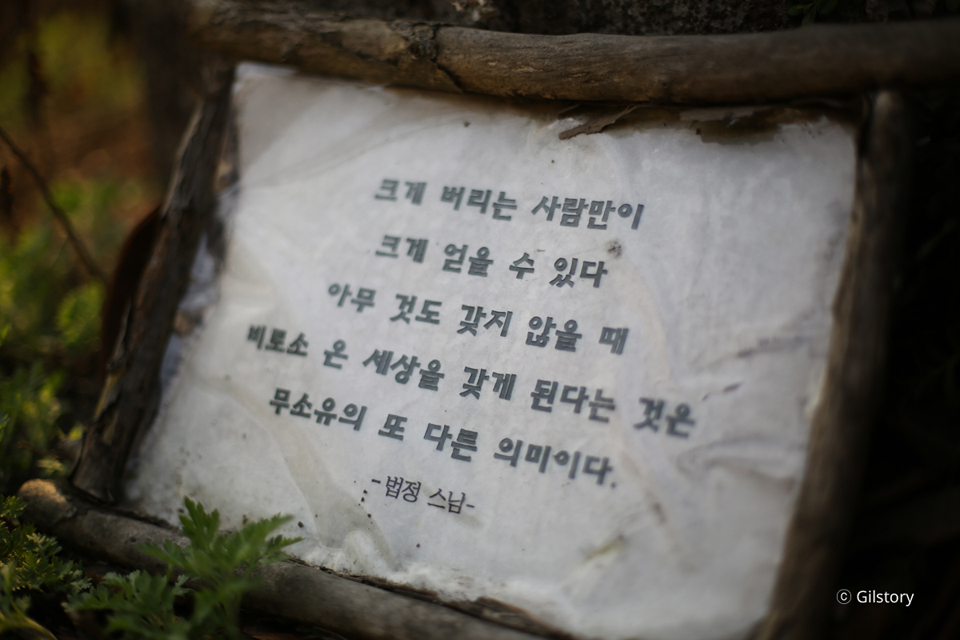 크게 버리는 사람만이
크게 얻을 수 있다
아무 것도 갖지 않을 때
비로소 온 세상을 갖게 된다는 것은
무소유의 또 다른 의미이다.
-법정 스님-
ⓒ Gilstory